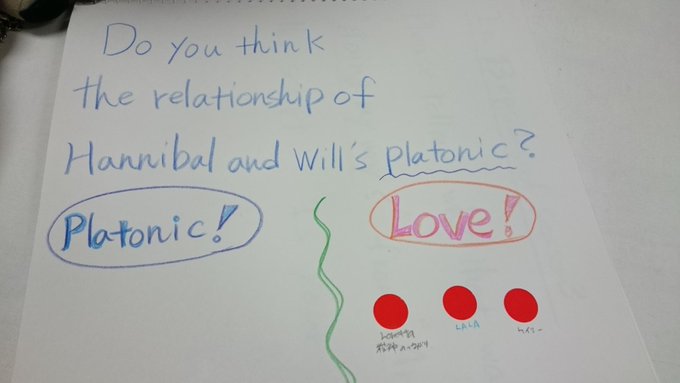 Do you think
the relationship of
Hannibal and Will's platonic?
Platonic!
Love!
LALA